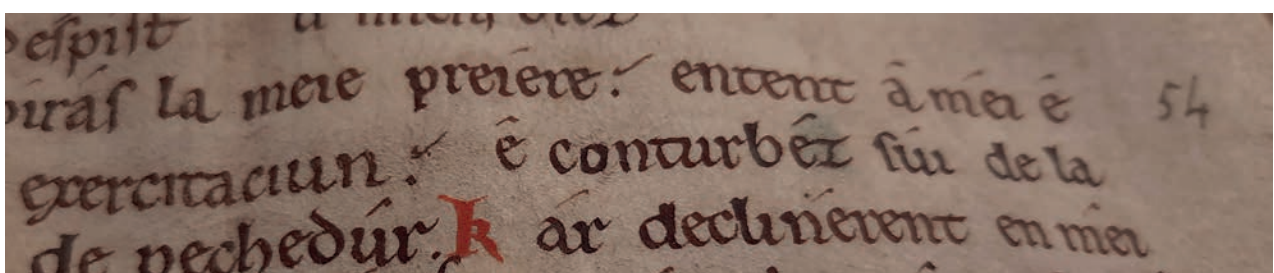 despist
irás la meie preiere: entent à méi é 54
exercitaciun: é conturbéz sui de la
de pechedúr. kár declinérent en méi